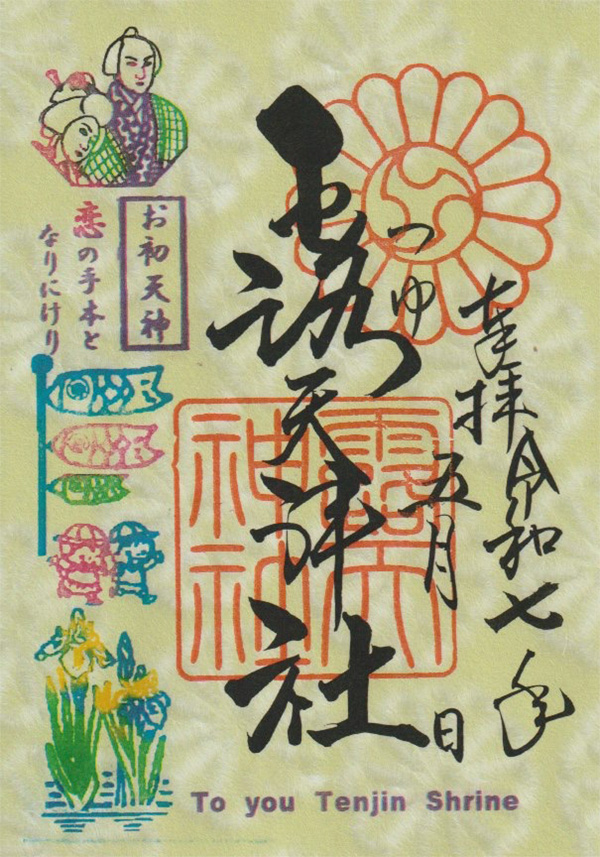 奉拝 令和七年
五月 日
つゆ
露天神社
露天
神社
お初天神
恋の手本と
なりにけり
To you Tenjin Shrine